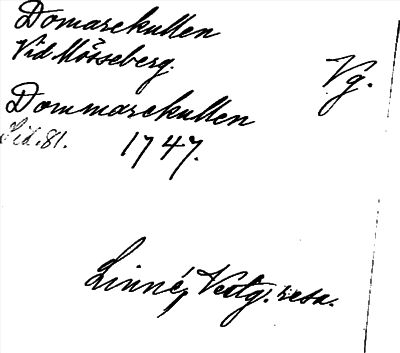 Domarekullen
Vid Mösseberg.
Vg.
Dommarekullen
Sid. 81. 1747.
Linné, Vestg. resa.